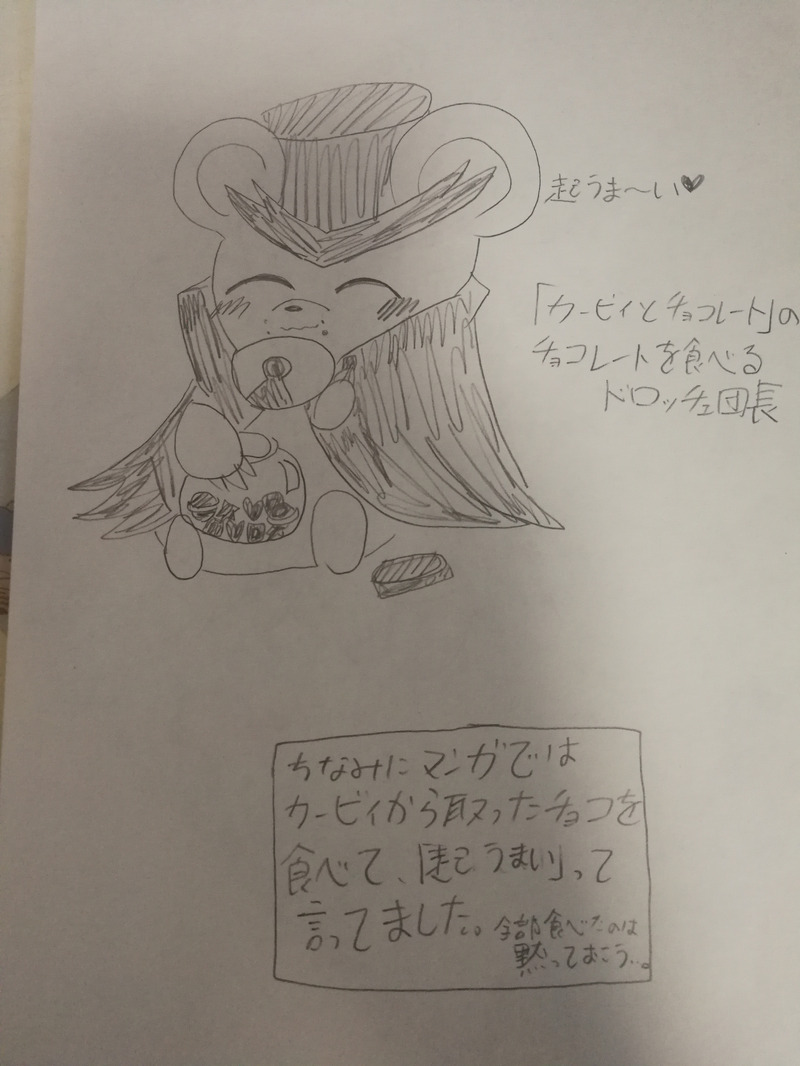 起うま〜い♥
「カービィとチョコレート」の
チョコレートを食べる
ドロッチェ団長
ちなみにマンガでは
カービィから取ったチョコを
食べて、「起うまい」って
言ってました。
全部食べたのは
黙っておこう…。